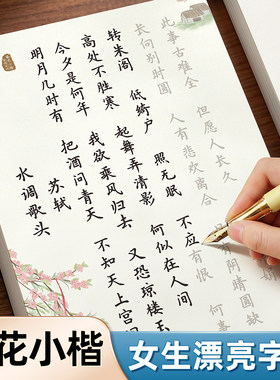 水调歌头
苏轼
明月几时有
把酒问青天
不知天上宫阙
今夕是何年
我欲乘风归去
又恐琼楼玉
高处不胜寒
起舞弄清影
何似在人间
转朱阁
低绮户
照无眠
不应有恨
何
长向别时圆
人有悲欢离合
阴晴圆缺
此事古难全
但愿人长久
花小楷
女生漂亮字